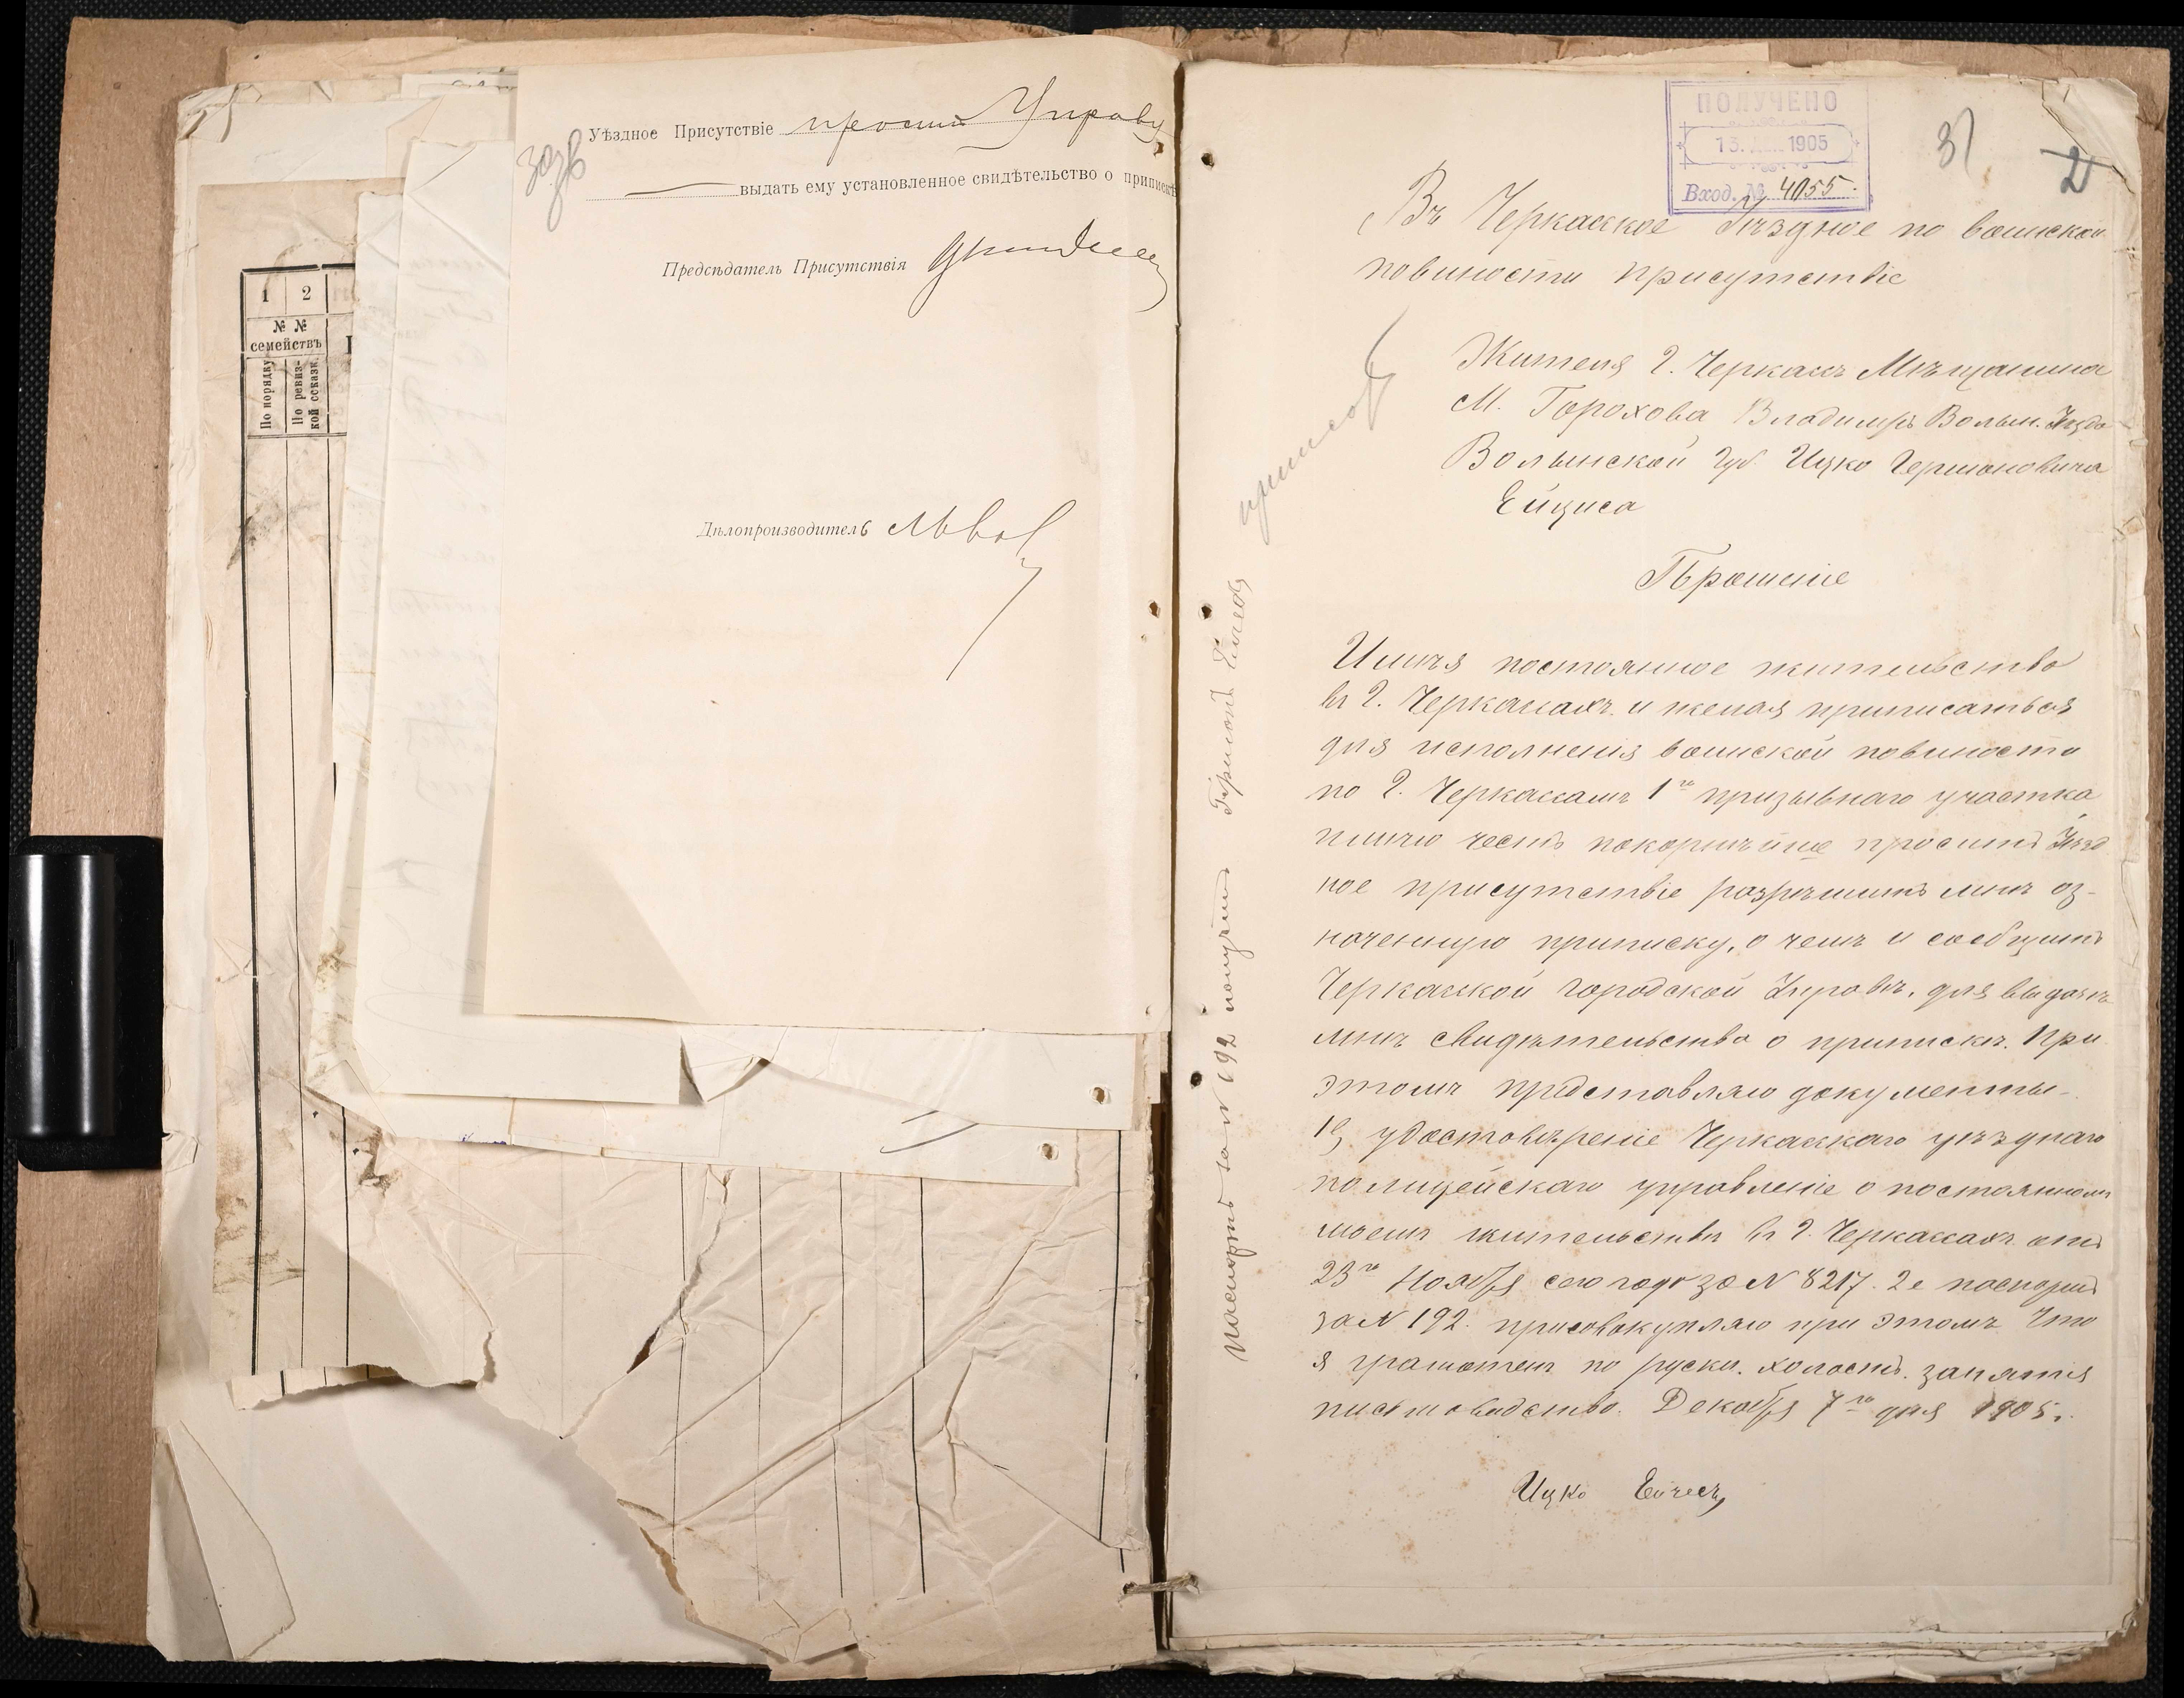 Уѣздное Присутствіе проситъ Управу
выдать ему установленное свидѣтельство о припискѣ
Предсѣдатель Присутствія
Дѣлопроизводитель Львов
1 2
№ №
семействъ
По порядку
По ревиз-
кой ссказк.
ПОЛУЧЕНО
13. 1905
Вход. № 4055.
37
2
Въ Черкасское Уѣздное по воинской
повиности присутствіе
Жителя г. Черкасъ Мѣщанина
М. Горохова Владимиръ Волын. Уѣзда
Волынской Губ. Ицко Гершоновича
Ейциса
Прошеніе
Имѣя постоянное жительство
въ г. Черкасахъ и желая приписаться
для исполненія воинской повиности
по г. Черкассамъ 1го призывнаго участка
имѣю честь покорнѣйше просить Уѣзд
ное присутствіе разрѣшить мнѣ оз-
наченную приписку, о чемъ и сообщить
Черкасской городской Управѣ, для выдачѣ
мнѣ свидѣтельства о припискѣ. При
этомъ представляю документы
1е, удостовѣреніе Черкасскаго уѣзднаго
полицейскаго управленіе о постоянномъ
моемъ жительствѣ въ г. Черкассахъ отъ
23го Ноября сего года за N 8217. 2е паспортъ
за N 192. присовокупляю при этомъ что
я грамотенъ по руски. холостъ. занятія
письмоводство. Декабря 7го дня 1905г.
Ицко Ейчесъ
приписов
паспортъ за N 192 получилъ Гершонъ